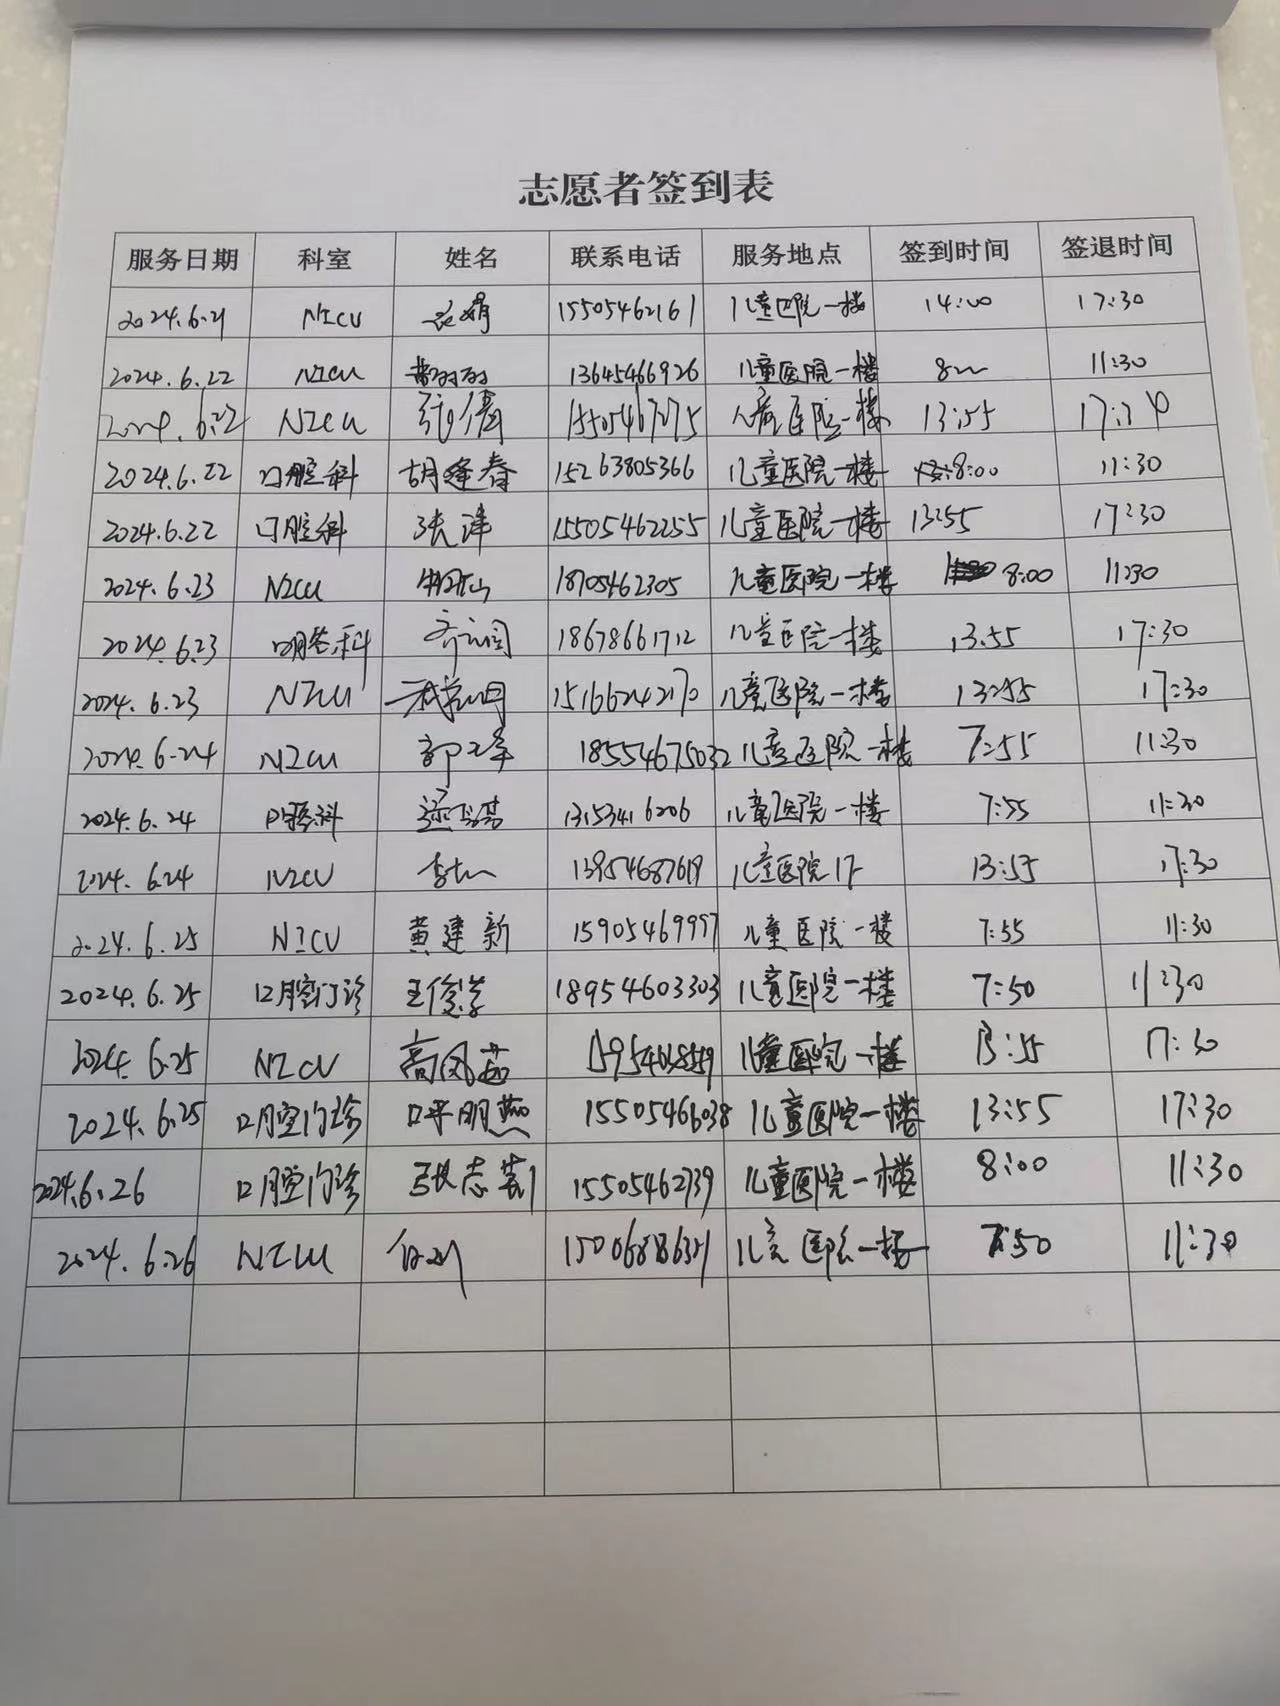 志愿者签到表
服务日期 科室 姓名 联系电话 服务地点 签到时间 签退时间
2024.6.21 NICU 15505462161 儿童医院一楼 14:00 17:30
2024.6.22 NICU 13645466926 儿童医院一楼 11:30
2024.6.22 NICU 张倩 15505467275 儿童医院一楼 13:55 17:30
2024.6.22 口腔科 胡逢春 15263805366 儿童医院一楼 8:00 11:30
2024.6.22 口腔科 张萍 15505462255 儿童医院一楼 13:55 17:30
2024.6.23 NICU 18705462305 儿童医院一楼 8:00 11:30
2024.6.23 口腔科 18678661712 儿童医院一楼 13:55 17:30
2024.6.23 NICU 15166242170 儿童医院一楼 13:55 17:30
2024.6.24 NICU 18554675032 儿童医院一楼 7:55 11:30
2024.6.24 口腔科 13153416206 儿童医院一楼 7:55 11:30
2024.6.24 NICU 13954687619 儿童医院1F 13:55 17:30
2024.6.25 NICU 黄建新 15905469997 儿童医院一楼 7:55 11:30
2024.6.25 口腔门诊 王俊学 18954603303 儿童医院一楼 7:50 11:30
2024.6.25 NICU 高凤茹 儿童医院一楼 13:55 17:30
2024.6.25 口腔门诊 明燕 15505466038 儿童医院一楼 13:55 17:30
2024.6.26 口腔门诊 张志 15505462739 儿童医院一楼 8:00 11:30
2024.6.26 NICU 儿童医院一楼 7:50 11:30